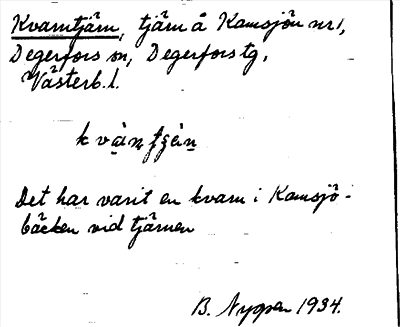 Kvarntjärn, tjärn å Kamsjön nr 1,
Degerfors sn, Degerfors tg,
Västerb. l.
Det har varit en kvarn i Kamsjö-
bäcken vid tjärnen
B. Nygren 1934.